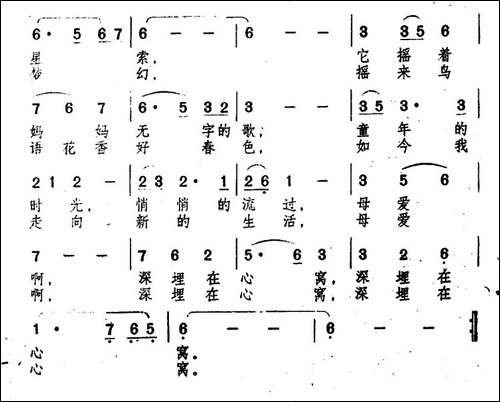 6· 5 6 7 | 6 – – | 6 – – | 3 3 5 6
星 索， 它 摇 着
梦 幻， 摇 来 鸟
7 6 7 | 6· 5 3 2 | 3 – – | 3 5 3· 3
妈 妈 无 字 的 歌， 童 年 的
语 花 香 好 春 色， 如 今 我
2 1 2 – | 2 3 2· 1 | 2 6 1 – | 3 5 6
时 光， 悄 悄 的 流 过， 母 爱
走 向 新 的 生 活， 母 爱
7 – – | 7 6 2 | 5· 6 3 | 3 2 6
啊， 深 埋 在 心 窝， 深 埋 在
啊， 深 埋 在 心 窝， 深 埋 在
1· 7 6 5 | 6 – – | 6 – –
心 窝。
心 窝。